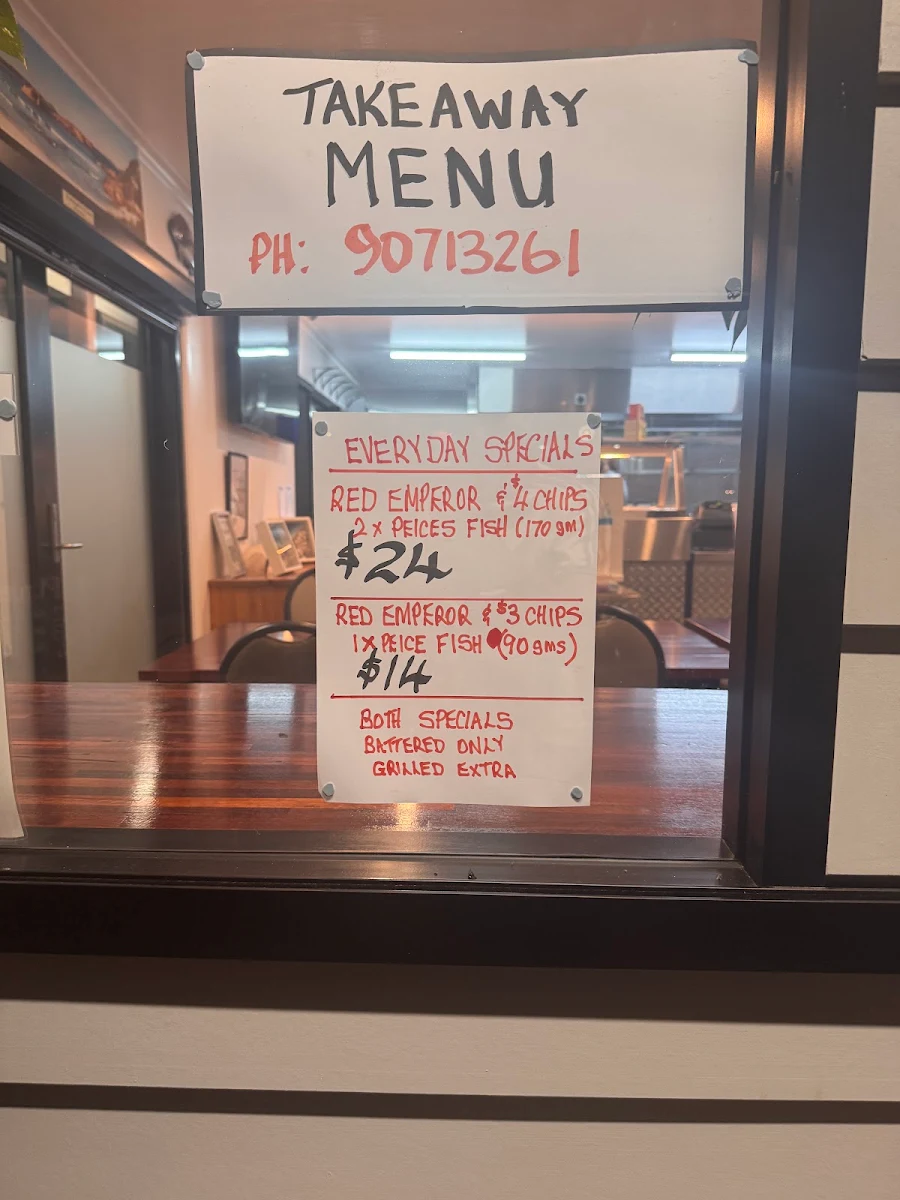 TAKEAWAY
MENU
PH: 90713261
EVERYDAY SPECIALS
RED EMPEROR & $4 CHIPS
2 x PEICES FISH (170 gm)
$24
RED EMPEROR & $3 CHIPS
1 x PEICE FISH (90 gms)
$14
BOTH SPECIALS
BATTERED ONLY
GRILLED EXTRA